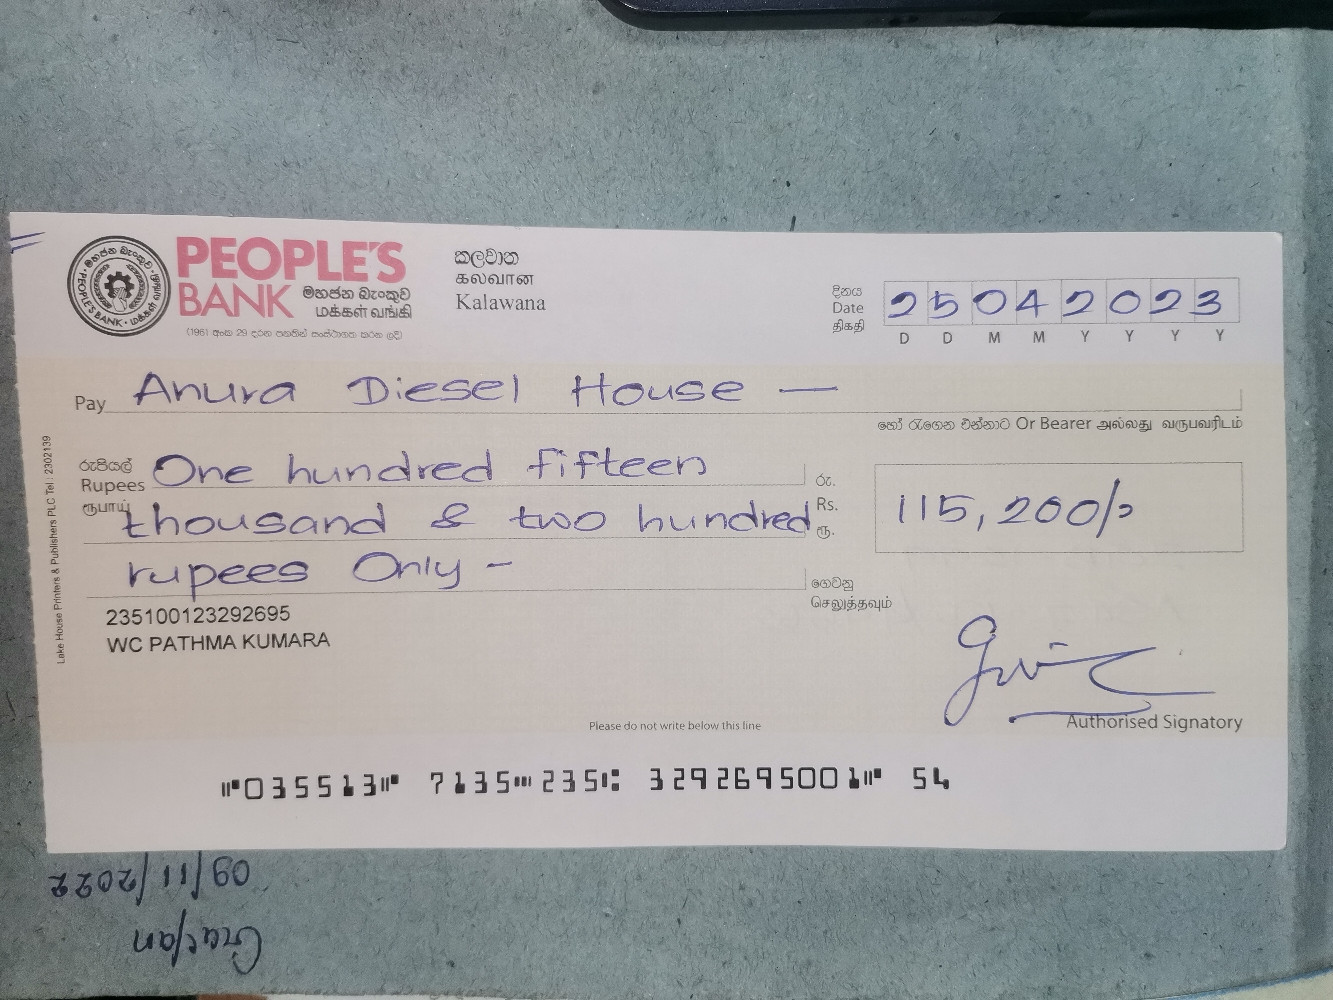 PEOPLE'S
BANK
මහජන බැංකුව
மக்கள் வங்கி
(1961 අංක 29 දරන පනතින් සංස්ථාගත කරන ලදි)
කලවාන
கலவான
Kalawana
දිනය
Date
திகதி
2 5 0 4 2 0 2 3
D D M M Y Y Y Y
Pay Anura Diesel House —
හෝ රැගෙන එන්නාට Or Bearer அல்லது வருபவரிடம்
රුපියල්
Rupees
ரூபாய்
One hundred fifteen
thousand & two hundred
rupees Only -
රු.
Rs.
ரூ.
115,200/-
ගෙවනු
செலுத்தவும்
235100123292695
WC PATHMA KUMARA
Authorised Signatory
Please do not write below this line
⑈035513⑈ 7135⑉235⑆ 3292695001⑈ 54
Lake House Printers & Publishers PLC Tel : 2302139
09/11/2022